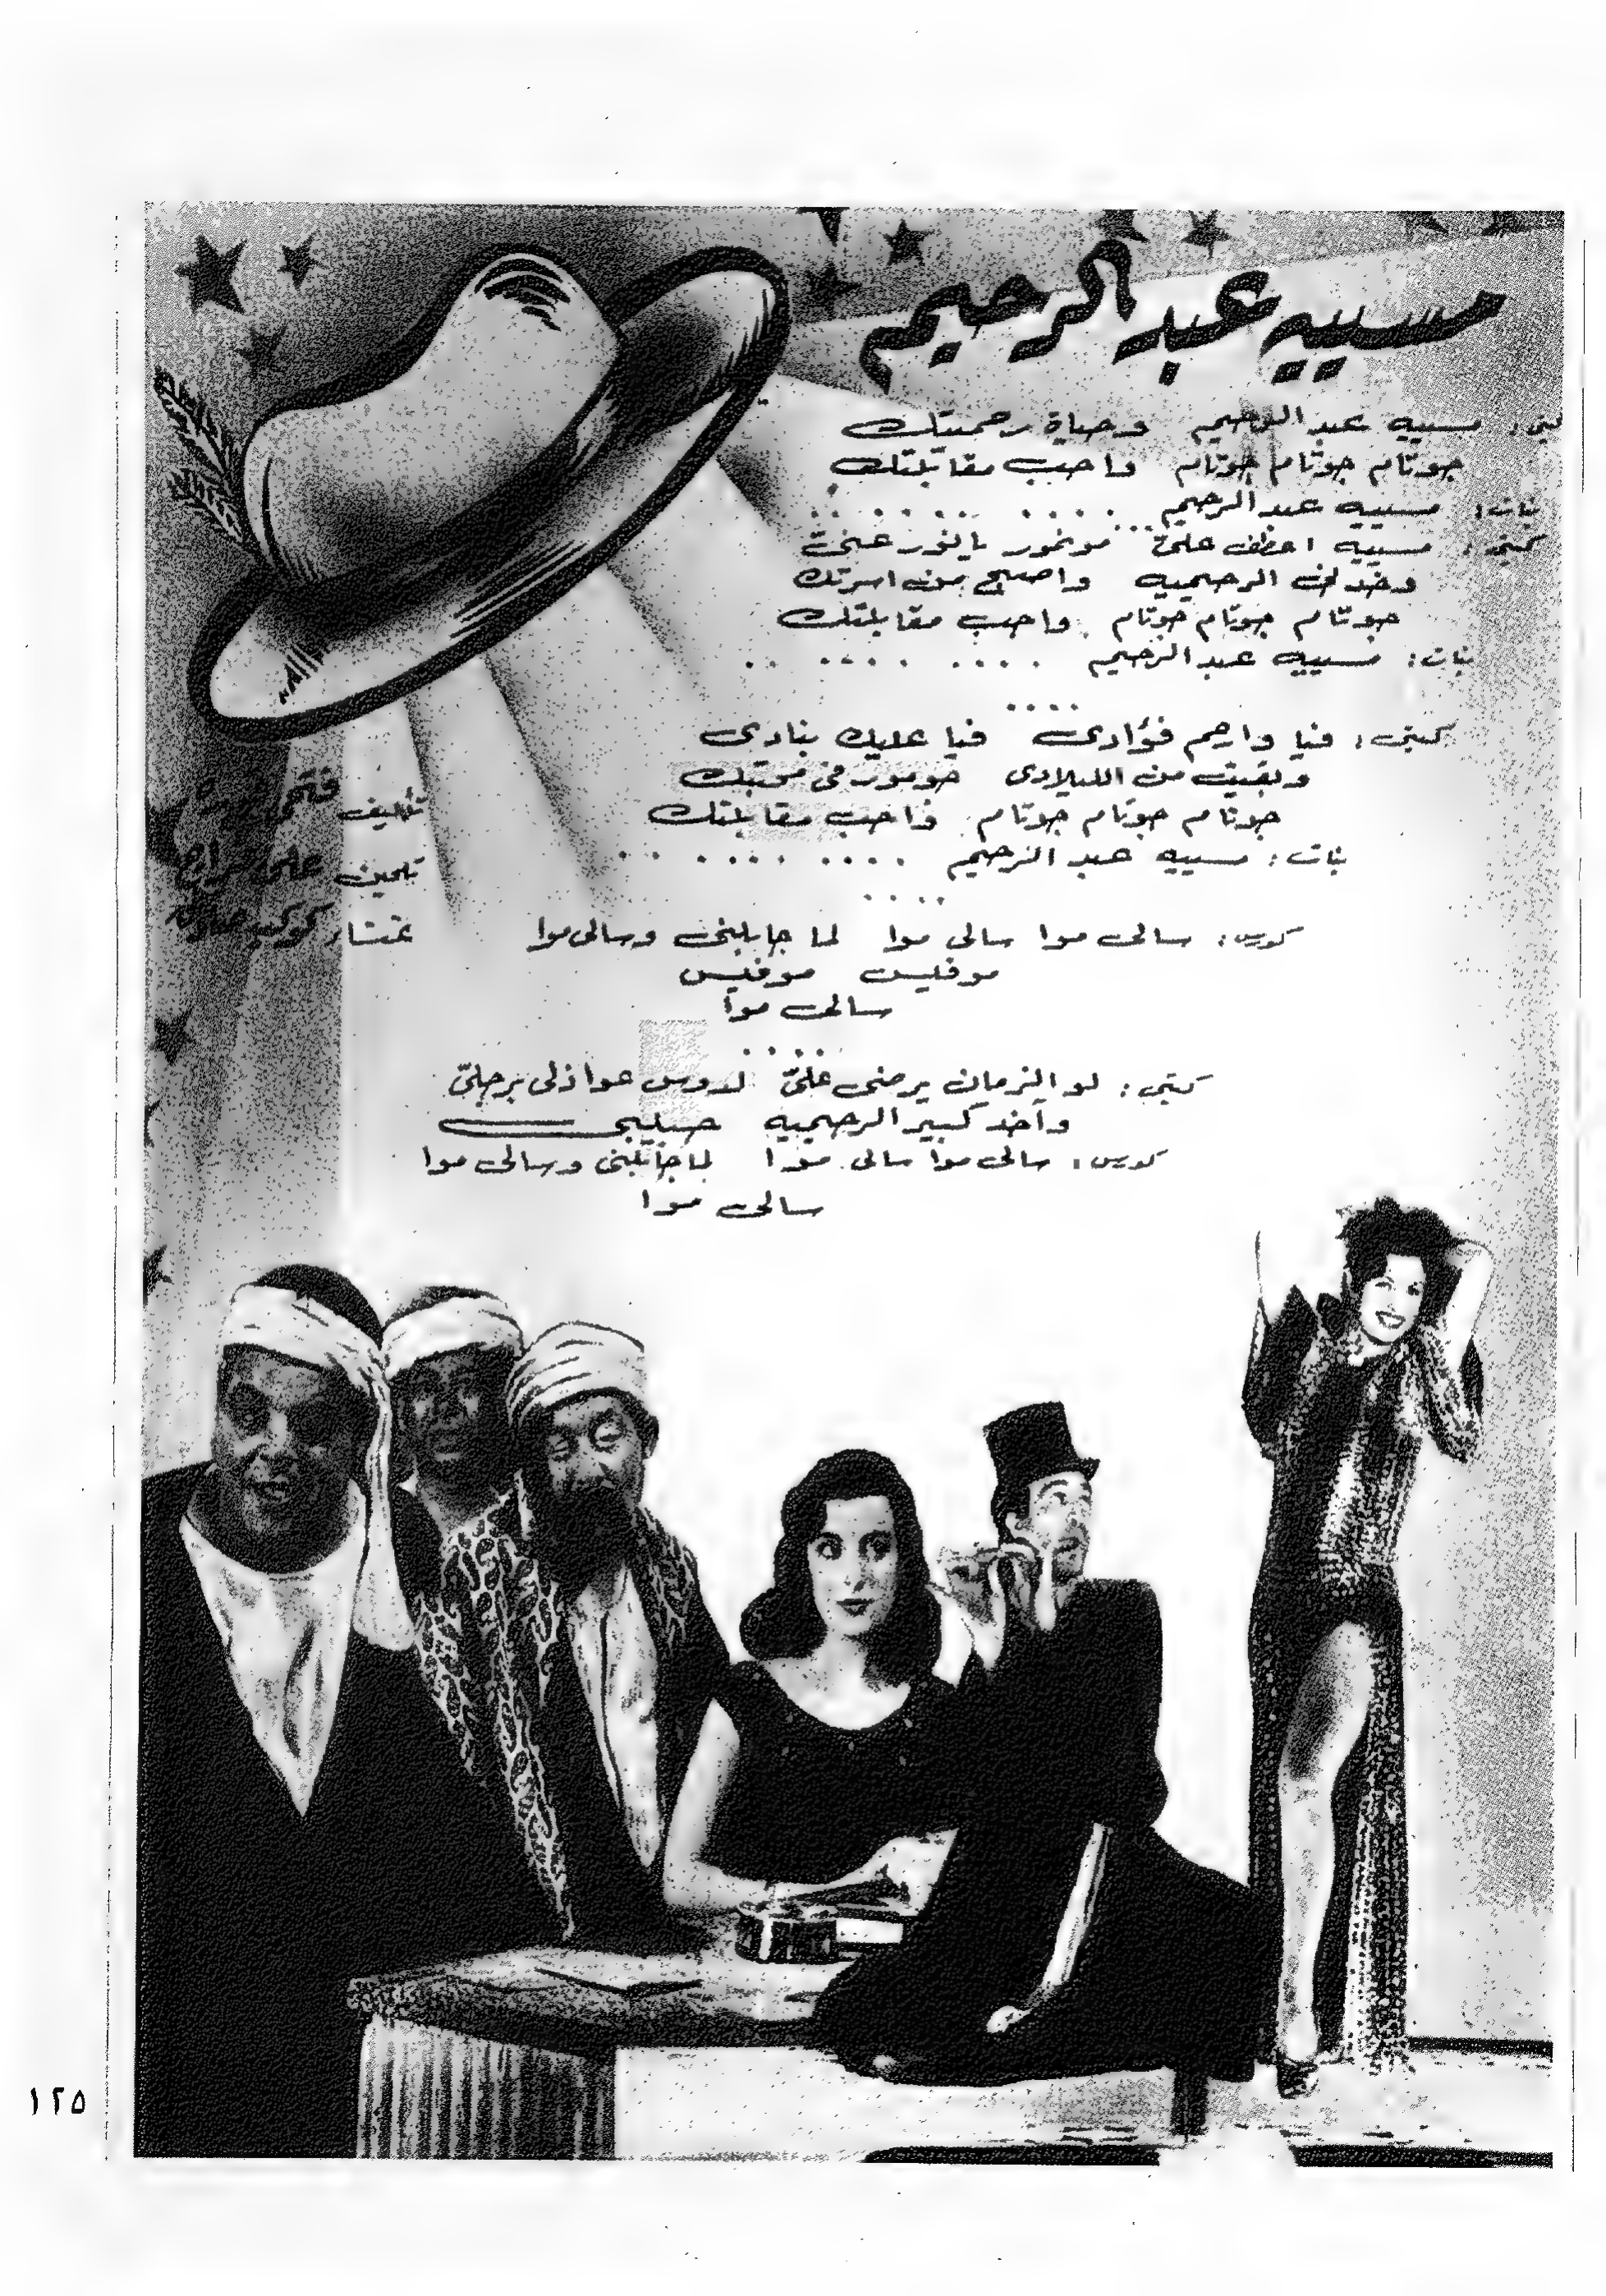 مسييه عبد الرحيم
كيتى: مسييه عبد الرحيم وحياة رحمتك
جوتام جوتام جوتام واحب مقابلتك
بنات: مسييه عبد الرحيم .... .... ..
كيتى: مسييه اعطف على ... مونمور يا نور عنى
وخدنى الرحيميه واصبح من اسرتك
جوتام جوتام جوتام واحب مقابلتك
بنات: مسييه عبد الرحيم .... .... ..
....
كيتى: فيا وارحم فؤادى فيا عليك بنادى
وبقيت من الليلادى
جوتام جوتام جوتام واحب مقابلتك
بنات: مسييه عبد الرحيم .... .... ..
....
كورس: سالى موا سالى موا لما جابلنى وسالى موا
موفيس موفيس
سالى موا
....
كيتى: لو الزمان يرضى علىّ لدوس عواذلى برجلىّ
وآخد كبير الرحيميه حبيبى
كورس: سالى موا سالى موا لما جابلنى وسالى موا
سالى موا
تأليف فتحى
تلحين على فراج
غناء كوكب صادق
١٢٥